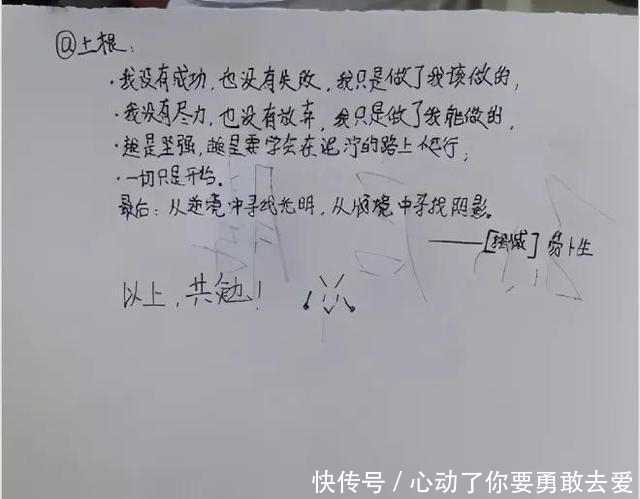 @上根:
·我没有成功,也没有失败,我只是做了我该做的,
·我没有尽力,也没有放弃,我只是做了我能做的,
·越是坚强,越是要学会在泥泞的路上爬行;
·一切只是开始。
最后:从逆境中寻找光明,从顺境中寻找阴影。
——[挪威]易卜生
以上,共勉!
快传号/心动了你要勇敢去爱